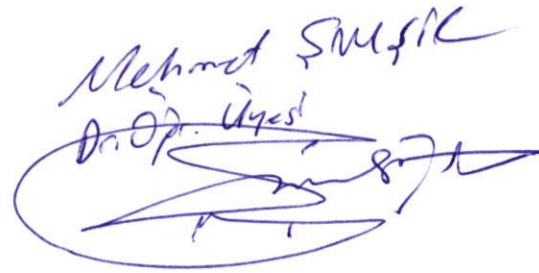 Mehmet ŞİMŞİK
Dr. Öğr. Üyesi